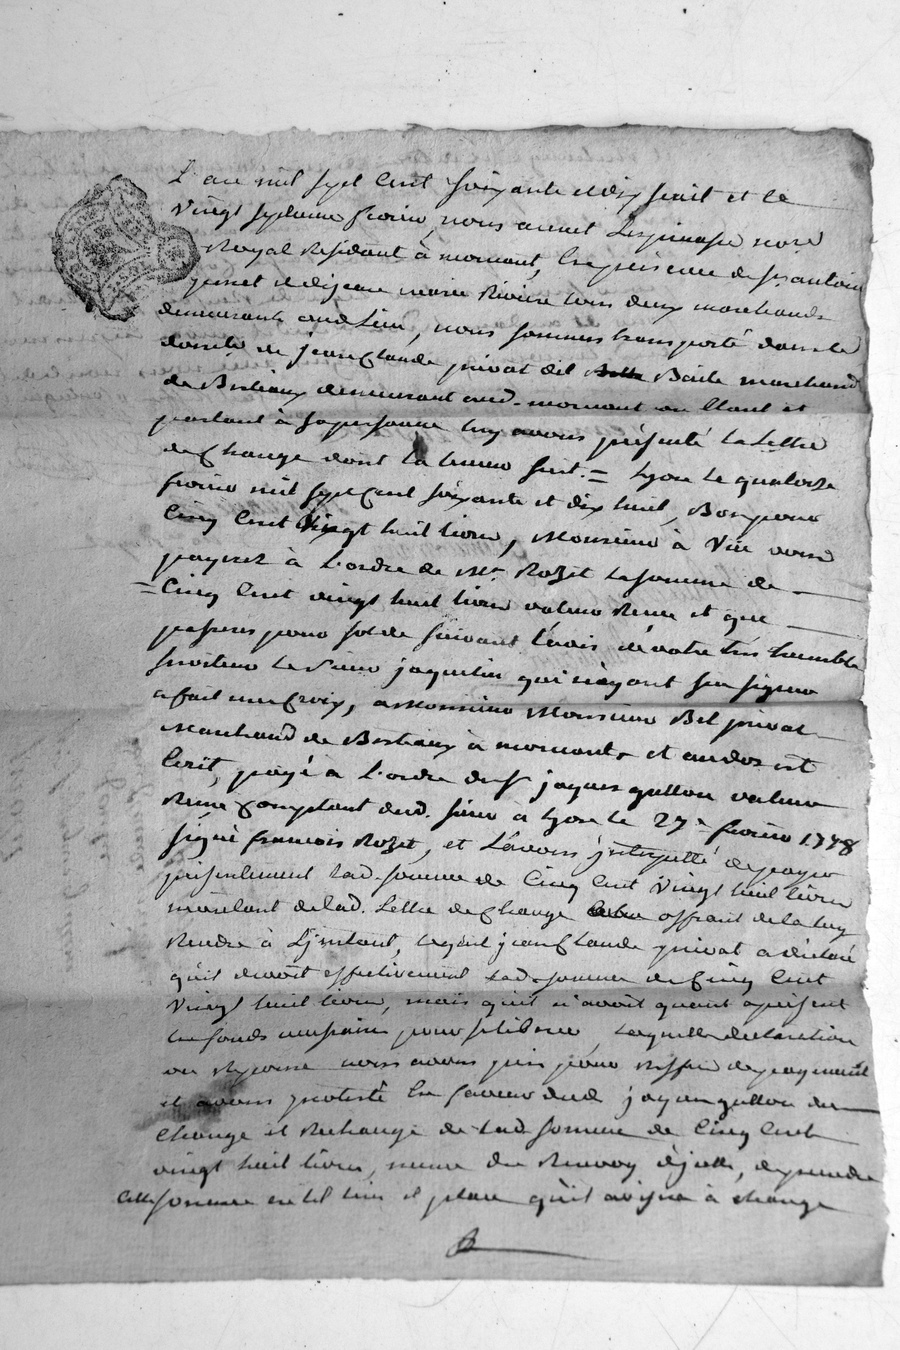 L'an mil sept Cent soixante et dix huit et le
Vingt septieme fevrier, nous Lespinasse nore
Royal Residant à mornant, En presence de sr antoine
et de jean marie Riviere tous deux marchands
demeurants aud. Lieu, nous sommes transporté dans le
domile de jean Claude privat dit Baile marchand
de Bestiaux demeurant aud. mornant ou Etant et
parlant à sa personne luy avons présenté la Lettre
de Change dont la teneur suit. = Lyon le quatorze
fevrier mil sept Cent soixante et dix huit, Bon pour
Cinq Cent Vingt huit livres, Monsieur à Vüe vous
payerez à L'ordre de Mr. Rozet la somme de
= Cinq Cent vingt huit livres valeur Reçue et que
passerez pour solde suivant l'avis de votre tres humble
serviteur Le sieur jaquetin qui n'ayant sçu signer
a fait une Croix, a Monsieur Monsieur Bel privat
Marchand de Bestiaux à mornant, et au dos est
Ecrit, payé à L'ordre du sr. jaques gallon valeur
Reçue Comptant dud. sieur à Lyon le 27e fevrier 1778
signé francois Rozet, et L'avons interpellé de payer
présentement lad. somme de Cinq Cent Vingt huit livres
montant de lad. Lettre de Change offrant de la luy
Rendre à L'jnstant, Lequel jean Claude privat a déclaré
qu'il devoit effectivement lad. somme de Cinq Cent
Vingt huit livres, mais qu'il n'avoit quant a présent
les fonds necessaires pour se liberer, Laquelle declaration
ou Reponse nous avons pris pour Reffus de payement
et avons protesté En faveur dud. jaques gallon du
Change et Rechange de lad. somme de Cinq Cent
vingt huit livres, meme du Renvoy d'jcelle, de prendre
Cette somme en tel lieu et place qu'il avisera à change